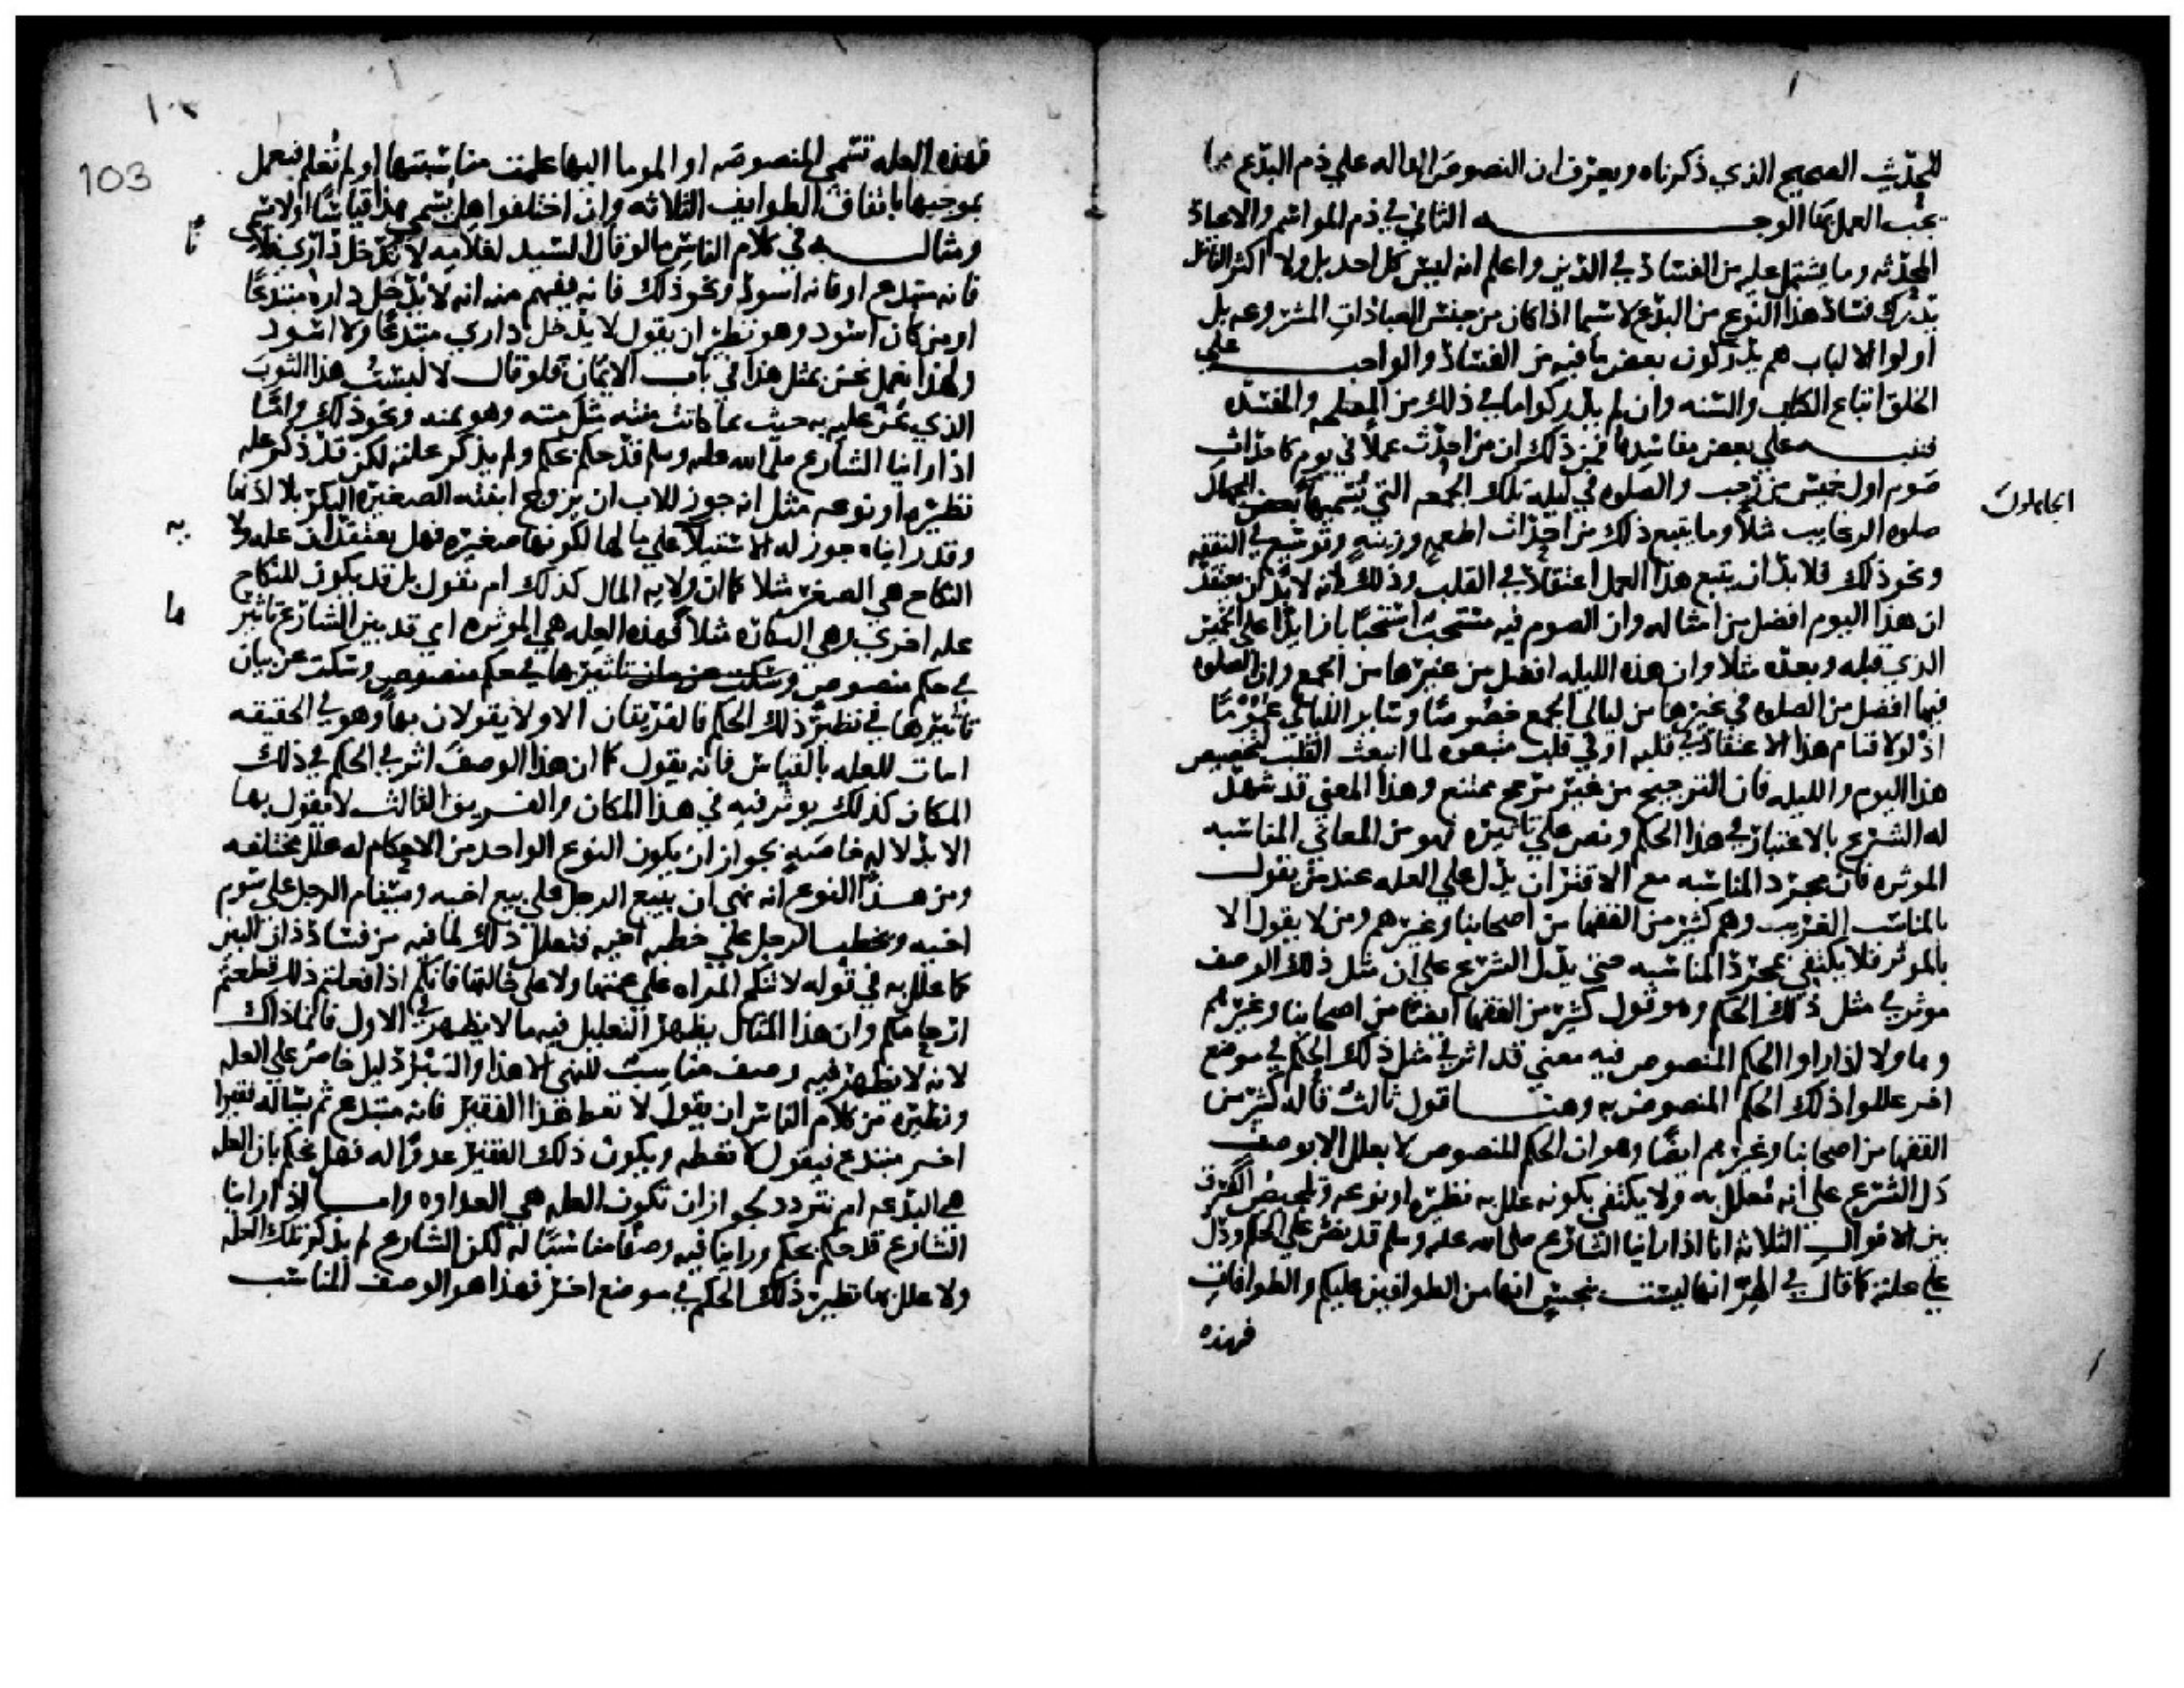 للحديث الصحيح الذي ذكرناه ويعترف ان النصوص الداله علي ذم البدع مما
يجب العمل بها الوجه الثاني في ذم المواسم والاعياد
المحدثه وما يشتمل عليه من الفساد في الدين واعلم انه ليس كل احد بل ولا اكثر الناس
يدرك فساد هذا النوع من البدع لاسيما اذا كان من جنس العبادات المشروعه بل
اولوا الالباب هم يدركون بعض ما فيه من الفساد والواجب علي
الخلق اتباع الكتاب والسنه وان لم يدركوا ما في ذلك من المصلحه والمفسده
فننبه علي بعض مفاسدها فمن ذلك ان من احدث عملا في يوم كاحداث
صوم اول خميس من رجب والصلوه في ليله تلك الجمعه التي يسميها بعض الجهال
الجاهلون
صلوه الرغايب مثلا وما يتبع ذلك من احداث اطعمه وزينه وتوسيع في النفقه
ونحو ذلك فلا بد ان يتبع هذا العمل اعتقاد في القلب وذلك لانه لا بد ان يعتقد
ان هذا اليوم افضل من امثاله وان الصوم فيه مستحب استحبابا زايدا على الخميس
الذي قبله وبعده مثلا وان هذه الليله افضل من غيرها من الجمع وان الصلوه
فيها افضل من الصلوه في غيرها من ليالي الجمع خصوصا وساير الليالي عموما
اذ لولا قيام هذا الاعتقاد في قلبه او في قلب متبوعه لما انبعث القلب لتخصيص
هذا اليوم والليله فان الترجيح من غير مرجح ممتنع وهذا المعني قد شهد
له الشرع بالاعتبار في هذا الحكم ونص علي تاثيره فهو من المعاني المناسبه
الموثره فان مجرد المناسبه مع الاقتران يدل علي العله عند من يقول
بالمناسب الغريب وهم كثير من الفقها من اصحابنا وغيرهم ومن لا يقول الا
بالموثر فلا يكتفي بمجرد المناسبه حتي يدل الشرع علي ان مثل ذلك الوصف
موثر في مثل ذلك الحكم وهو قول كثير من الفقها ايضا من اصحابنا وغيرهم
وهاولا اذا راوا الحكم المنصوص فيه معني قد اثر في مثل ذلك الحكم في موضع
اخر عللوا ذلك الحكم المنصوص به وهنا قول ثالث قاله كثير من
الفقها من اصحابنا وغيرهم ايضا وهو ان الحكم المنصوص لا يعلل الا بوصف
دل الشرع علي انه معلل به ولا يكتفي بكونه علل به نظيره او نوعه وتلخيص الفرق
بين الاقوال الثلاثه انا اذا راينا الشارع صلى الله عليه وسلم قد نص علي الحكم ودل
علي علته كما قال في الهر انها ليست بنجس انها من الطوافين عليكم والطوافات
فهذه
103
فهذه العله تسمي المنصوصه او الموما اليها علمت مناسبتها او لم تعلم فيعمل
بموجبها باتفاق الطوايف الثلاثه وان اختلفوا هل يسمي هذا قياسا او لا يسمي
ومثاله في كلام الناس ما لو قال السيد لغلامه لا تدخل داري فلانا
فانه مبتدع او فانه اسود ونحو ذلك فانه يفهم منه انه لا يدخل داره مبتدعا
او من كان اسود وهو نظير ان يقول لا يدخل داري مبتدعا ولا اسود
ولهذا نعمل نحن بمثل هذا في باب الايمان فلو قال لا لبست هذا الثوب
الذي يمن علي به حنث بما كانت منته مثل منته وهو ثمنه ونحو ذلك واما
اذا راينا الشارع صلى الله عليه وسلم قد حكم بحكم ولم يذكر علته لكن قد ذكر عله
نظيره او نوعه مثل انه جوز للاب ان يزوج ابنته الصغيره البكر بلا اذنها
وقد راينا جوز له الاستيلا علي مالها لكونها صغيره فهل يعتقد ان عله ولا
يه
النكاح هي الصغر مثلا كما ان ولايه المال كذلك ام نقول بل قد يكون للنكاح
عله اخري وهي البكاره مثلا فهذه العله هي الموثره اي قد بين الشارع تاثير
ها
في حكم منصوص وسكت عن بيان تاثيرها في حكم منصوص وسكت عن بيان
تاثيرها في نظير ذلك الحكم فالفريقان الاولان يقولان بها وهو في الحقيقه
اثبات للعله بالقياس فانه يقول كما ان هذا الوصف اثر في الحكم في ذلك
المكان كذلك يوثر فيه في هذا المكان والفريق الثالث لا يقول بها
الا بدلاله خاصه لجواز ان يكون النوع الواحد من الاحكام له علل مختلفه
ومن هذا النوع انه نهي ان يبيع الرجل علي بيع اخيه ويستام الرجل علي سوم
اخيه ويخطب الرجل علي خطبه اخيه فيعلل ذلك لما فيه من فساد ذات البين
كما علل به في قوله لا تنكح المراه علي عمتها ولا علي خالتها فانكم اذا فعلتم ذلك قطعتم
ارحامكم وان هذا المثال يظهر التعليل فيه ما لا يظهر في الاول فانما ذاك
لانه لا يظهر فيه وصف مناسب للنهي الا هذا والسبر دليل خاص علي العله
ونظيره من كلام الناس ان يقول لا تعط هذا الفقير فانه مبتدع ثم يساله فقير
اخر مبتدع فيقول لا تعطه ويكون ذلك الفقير عدوا له فهل نحكم بان العله
هي البدعه ام نتردد لجواز ان تكون العله هي العداوه واما اذا راينا
الشارع قد حكم بحكم وراينا فيه وصفا مناسبا له لكن الشارع لم يذكر تلك العله
ولا علل بها نظير ذلك الحكم في موضع اخر فهذا هو الوصف المناسب